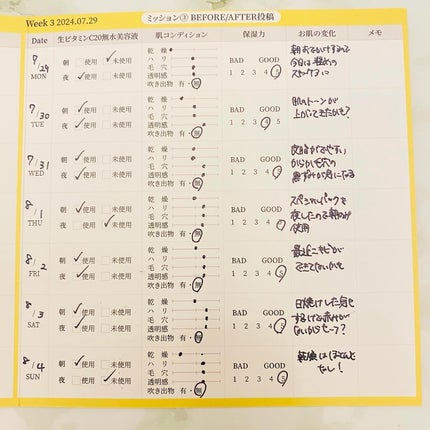 Week 3 2024.07.29 ミッション③ BEFORE/AFTER投稿
Date 生ビタミンC20無水美容液 肌コンディション 保湿力 お肌の変化 メモ
7/29 MON
朝 使用 ✓未使用
夜 ✓使用 未使用
乾燥
ハリ
毛穴
透明感
吹き出物 有・無
BAD GOOD
1 2 3 4 5
7/30 TUE
朝 ✓使用 未使用
夜 ✓使用 未使用
乾燥
ハリ
毛穴
透明感
吹き出物 有・無
BAD GOOD
1 2 3 4 5
肌のトーンが
上がってきたかも?
7/31 WED
朝 ✓使用 未使用
夜 ✓使用 未使用
乾燥
ハリ
毛穴
透明感
吹き出物 有・無
BAD GOOD
1 2 3 4 5
皮脂がでやすい
からか毛穴の
黒ずみが気になる
8/1 THU
朝 ✓使用 未使用
夜 使用 ✓未使用
乾燥
ハリ
毛穴
透明感
吹き出物 有・無
BAD GOOD
1 2 3 4 5
スペシャルパックを
夜したので朝のみ
使用
8/2 FRI
朝 ✓使用 未使用
夜 ✓使用 未使用
乾燥
ハリ
毛穴
透明感
吹き出物 有・無
BAD GOOD
1 2 3 4 5
最近ニキビが
できてないかも
8/3 SAT
朝 ✓使用 未使用
夜 ✓使用 未使用
乾燥
ハリ
毛穴
透明感
吹き出物 有・無
BAD GOOD
1 2 3 4 5
日焼けした
8/4 SUN
朝 ✓使用 未使用
夜 使用 ✓未使用
乾燥
ハリ
毛穴
透明感
吹き出物 有・無
BAD GOOD
1 2 3 4 5
乾燥はほとんど
なし!